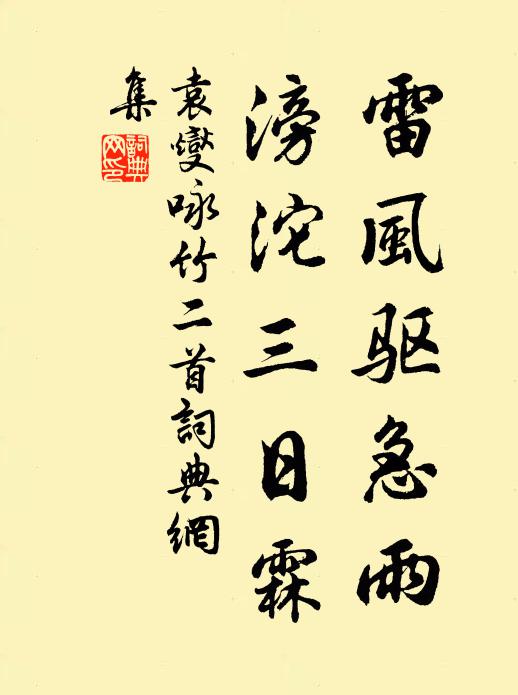 雷風驱急雨
滂沱三日霖
袁燮咏竹二首詞典網
集
詞典
网印